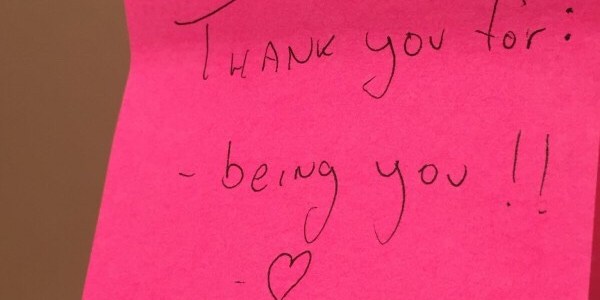 THANK you for:
- being you !!
- ♡